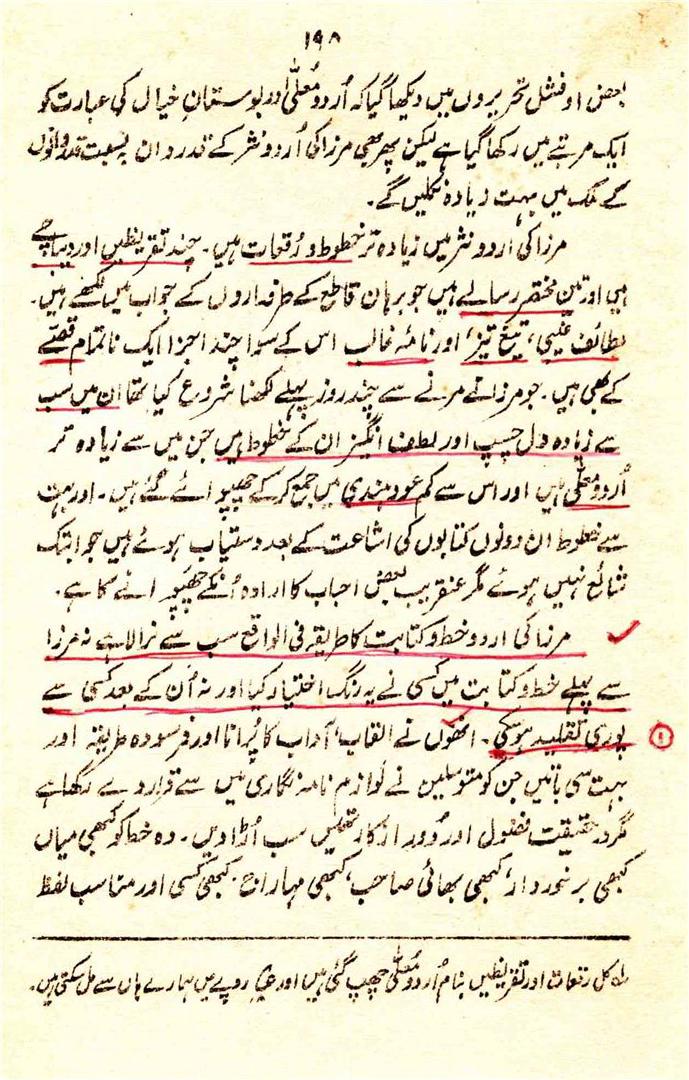 ۱۹۸
بعض اوفشل تحریروں میں دیکھا گیا کہ اُردو مُعلّٰی اور بوستانِ خیال کی عبارت کو
ایک مرتبے میں رکھا گیا ہے لیکن پھر بھی مرزا کی اُردو نثر کے قدردان بہ نسبت قدردانوں
کے ملک میں بہت زیادہ نکلیں گے۔
مرزا کی اردو نثر میں زیادہ تر خطوط و رُقعات ہیں۔ چند تقریظیں اور دیباچے
ہیں اور تین مختصر رسالے ہیں جو برہان قاطع کے طرفداروں کے جواب میں لکھے ہیں۔
لطائف غیبی، تیغ تیز، اور نامۂ غالب اس کے سوا چند اجزا ایک ناتمام قصّے
کے بھی ہیں۔ جو مرزا نے مرنے سے چند روز پہلے لکھنا شروع کیا تھا ان میں سب
سے زیادہ دل چسپ اور لطف انگیز ان کے خطوط ہیں جن میں سے زیادہ تر
اُردو معلّٰی ہیں اور اس سے کم عود ہندی میں جمع کر کے چھپوائے گئے ہیں۔ اور بہت
سے خطوط ان دونوں کتابوں کی اشاعت کے بعد دستیاب ہوئے ہیں جو ابتک
شائع نہیں ہوئے مگر عنقریب بعض احباب کا ارادہ اُنکے چھپوانے کا ہے۔
مرزا کی اردو خط و کتابت کا طریقہ فی الواقع سب سے نرالا ہے نہ مرزا
سے پہلے خط و کتابت میں کسی نے یہ رنگ اختیار کیا اور نہ اُن کے بعد کسی سے
پوری تقلید ہو سکی۔ انھوں نے القاب، آداب کا پُرانا اور فرسودہ طریقہ اور
بہت سی باتیں جن کو متوسلین نے لوازم نامہ نگاری میں سے قرار دے رکھا ہے
مگر در حقیقت فضول اور دُور از کار تھیں سب اُڑا دیں۔ وہ خط کو کبھی میاں
کبھی برخوردار، کبھی بھائی صاحب، کبھی مہاراج۔ کبھی کسی اور مناسب لفظ
کل رقعات اور تقریظیں بنام اُردو معلّٰی چھپ گئی ہیں اور روپے میں ہمارے ہاں سے مل سکتی ہیں۔